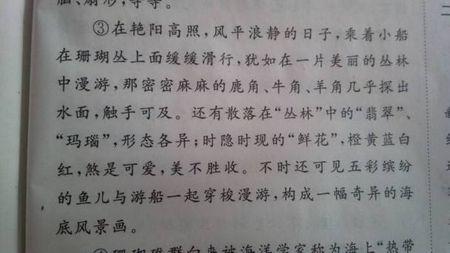 扇形,等等。
③在艳阳高照,风平浪静的日子,乘着小船
在珊瑚丛上面缓缓滑行,犹如在一片美丽的丛林
中漫游,那密密麻麻的鹿角、牛角、羊角几乎探出
水面,触手可及。还有散落在“丛林”中的“翡翠”、
“玛瑙”,形态各异;时隐时现的“鲜花”,橙黄蓝白
红,煞是可爱,美不胜收。不时还可见五彩缤纷
的鱼儿与游船一起穿梭漫游,构成一幅奇异的海
底风景画。
④珊瑚礁群向来被海洋学家称为海上“热带